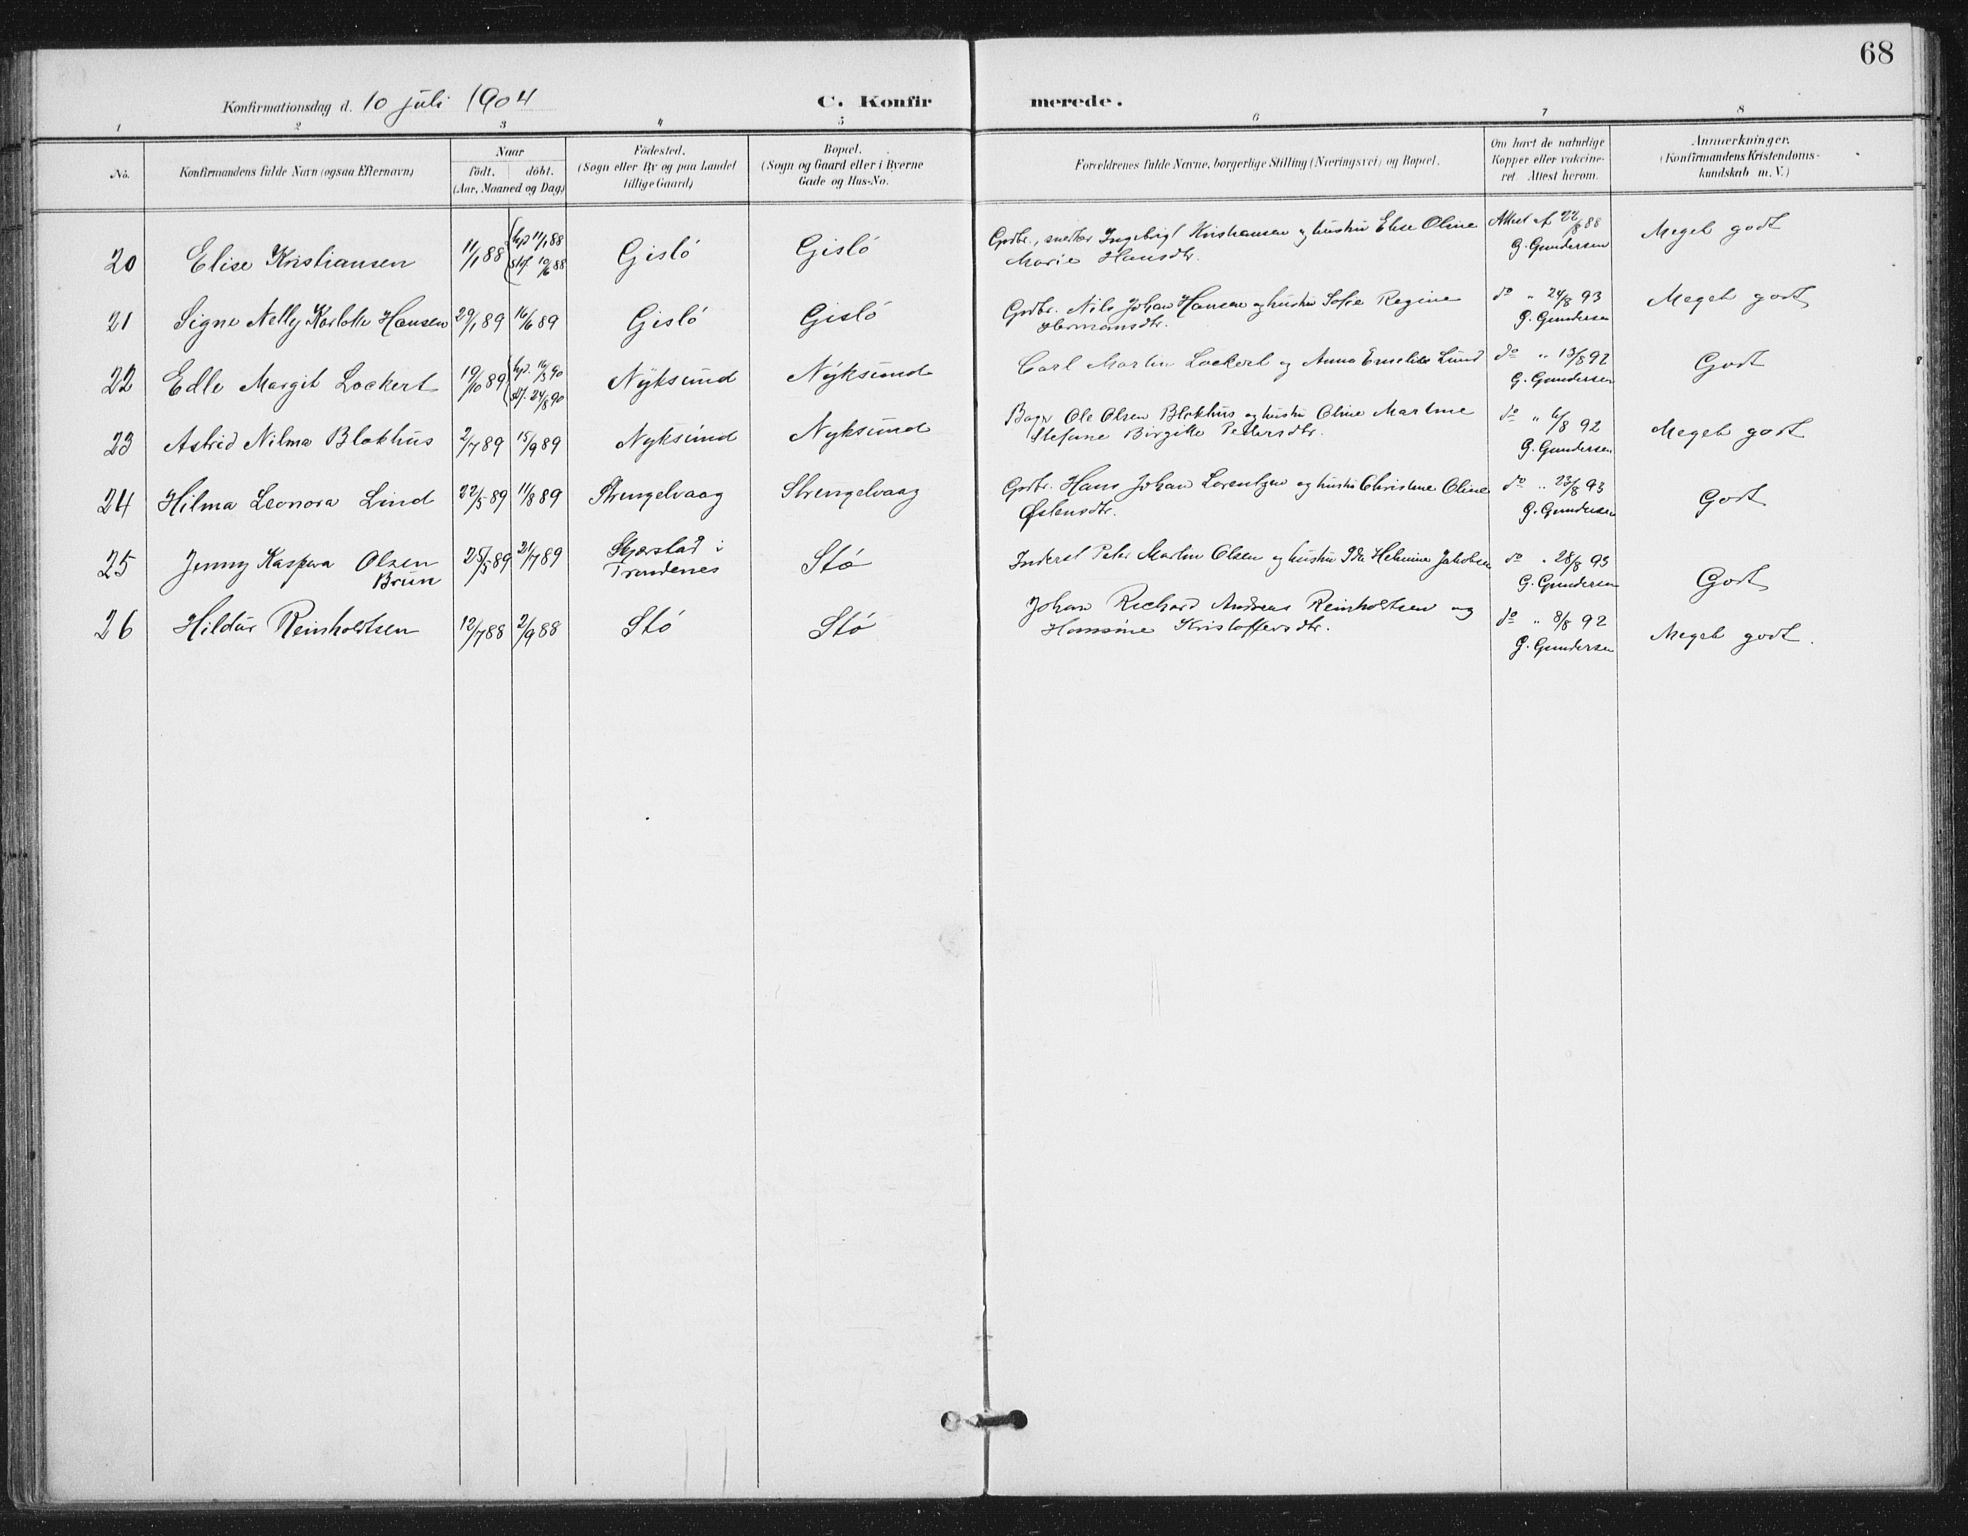 68
Konfirmationsdag d. 10 juli 1904 C. Konfirmerede.
1 2 3 4 5 6 7 8
No. Konfirmandens fulde Navn (ogsaa Efternavn) Naar födt. döbt. (Aar, Maaned og Dag) Födested. (Sogn eller By og paa Landet tillige Gaard) Bopæl. (Sogn og Gaard eller i Byerne Gade og Hus-No. Forældrenes fulde Navne, borgerlige Stilling (Næringsvei) og Bopæl. Om havt de naturlige Kopper eller vakcineret. Attest herom. Anmærkninger. (Konfirmandens Kristendomskundskab m. V.)
20 Elise Kristiansen 11/1 88 hjd 11/1 88 Gislö Gislö Grdbr., snedker Ingebrigt Kristiansen og hustru Elise Oline Attest af 22/8 88 Meget godt
stf. 10/6 88 Marie Hansdtr. G. Gundersen
21 Signe Nelly Karlotte Hansen 29/1 89 16/6 89 Gislö Gislö Grdbr. Nils Johan Hansen og hustru Sofie Regine do " 24/8 93 Meget godt
Hermansdtr. G. Gundersen
22 Edle Margit Lockert 19/10 89 hjd. 16/3 90 Nyksund Nyksund Carl Martin Lockert og Anna Emelie Lund do " 13/8 92 Godt
stf. 24/8 90 G. Gundersen
23 Astrid Nilma Blokhus 2/7 89 15/9 89 Nyksund Nyksund Bager Ole Olsen Blokhus og hustru Oline Martine do " 6/8 92 Meget godt
Stefane Birgitte Pedersdtr. G. Gundersen
24 Hilma Leonora Lind 22/5 89 11/8 89 Strengelvaag Strengelvaag Grdbr. Hans Johan Lorentzen og hustru Christine Oline do " 23/8 93 Godt
Östensdtr. G. Gundersen
25 Jenny Kaspara Olsen 25/5 89 21/7 89 Skjærstad i Stö Inderst Peter Martin Olsen og hustru Ida Helmine Jakobsen do " 28/8 93 Godt
Brun Trondenes G. Gundersen
26 Hildur Reinholdtsen 12/7 88 2/9 88 Stö Stö Johan Richard Andreas Reinholdtsen og do " 8/8 92 Meget godt.
Hansine Kristoffersdtr. G. Gundersen